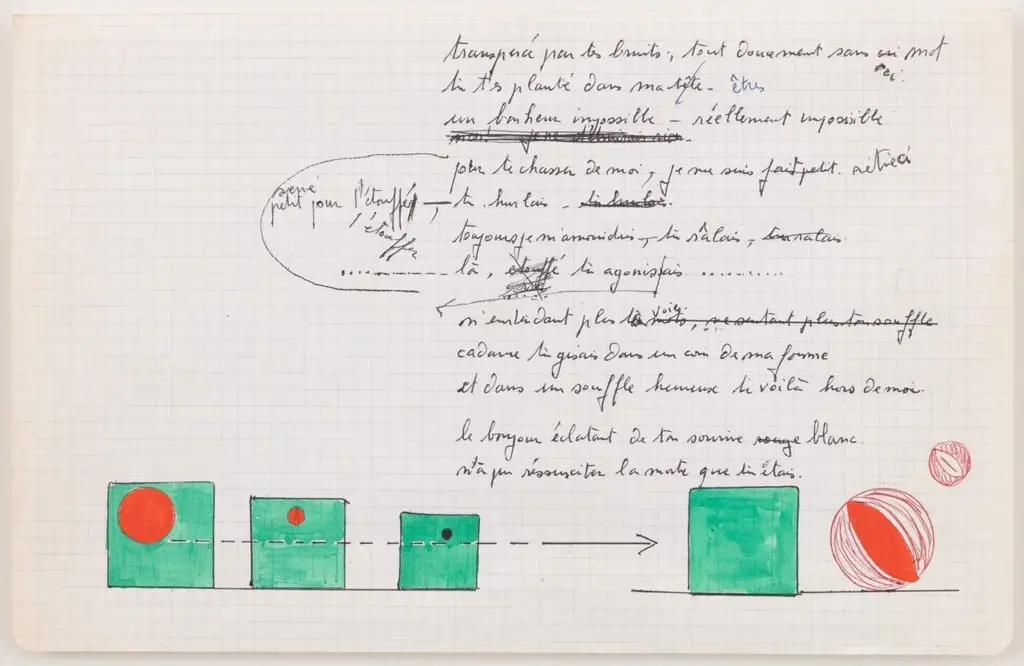 transpercé par tes bruits, tout doucement sans un mot
ci.
tu t'es planté dans ma tête - êtres
un bonheur impossible - réellement impossible
pour te chasser de moi, je me suis fait petit. rétréci
serré
petit pour l'étouffer,
l'étouffer
tu hurlais - tu hurlais.
toujours je m'amoindris, tu râlais, tu ralais.
là, étouffé tu agonisais ..........
voix
n'entendant plus mots, ne sentant plus ton souffle
cadavre tu gisais dans un coin de ma forme
et dans un souffle heureux te voilà hors de moi.
le bonjour éclatant de ton sourire rouge blanc.
n'a pu réssusciter la morte que tu étais.